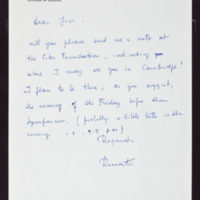 Dear Jim,
will you please send me a note at
the Ciba Foundation, indicating
where I may see you in Cambridge?
I plan to be there, as you suggest,
the evening of the Friday before the
Symposium. (probably a little late in the
evening i.e. 8-9 pm)
Regards